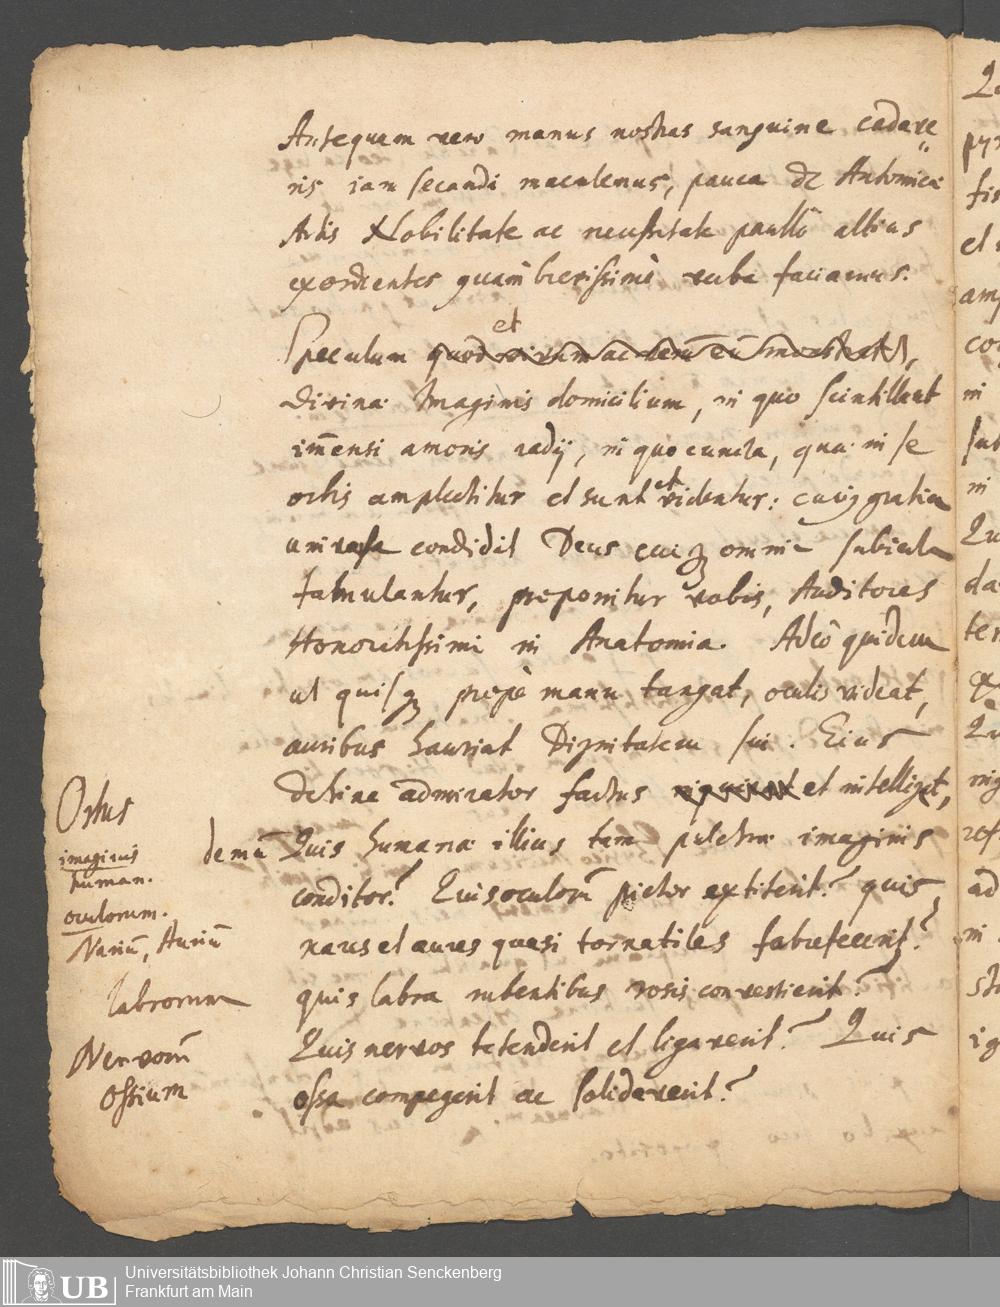 Antequam vero manus nostras sanguine cadave=
ris iam secandi maculemus, pauca de Antomicæ
Artis Nobilitate ac necessitate paullò altius
exordientes quàm brevissimè verba faciamus.
et
Speculum quod vivum ac
divinæ Imaginis domicilium, in quo scintillant
im̄ensi amoris radij, in quo cuncta, quæ in se
orbis amplectitur et sunt et videntur: cuiq gratia
universa condidit Deus cuiq omnia subiecta
famulantur, proponitur vobis, Auditores
Honoratissimi in Anatomia. Adeò quidem
ut quisq propè manu tangat, oculis videat,
auribus hauriat Dignitatem sui. Eius
deinde admirator factus et intelligat,
demū Quis humanæ illius tam pulchræ imaginis
conditor? Quis oculorū pictor extiterit? quis
nares et aures quasi tornatiles fabrefecerit?
quis labra rubentibus rosis convestierit?
Quis nervos tetenderit et ligaverit? Quis
ossa compegerit ac solidaverit?
Ortus
imaginis
human.
oculorum.
Nariū, Auriū
labrorum
Nervorū
ossium
Qu
fis
el
amp
co
in
in
Qu
da
ter
ad
in
UB Universitätsbibliothek Johann Christian Senckenberg
Frankfurt am Main